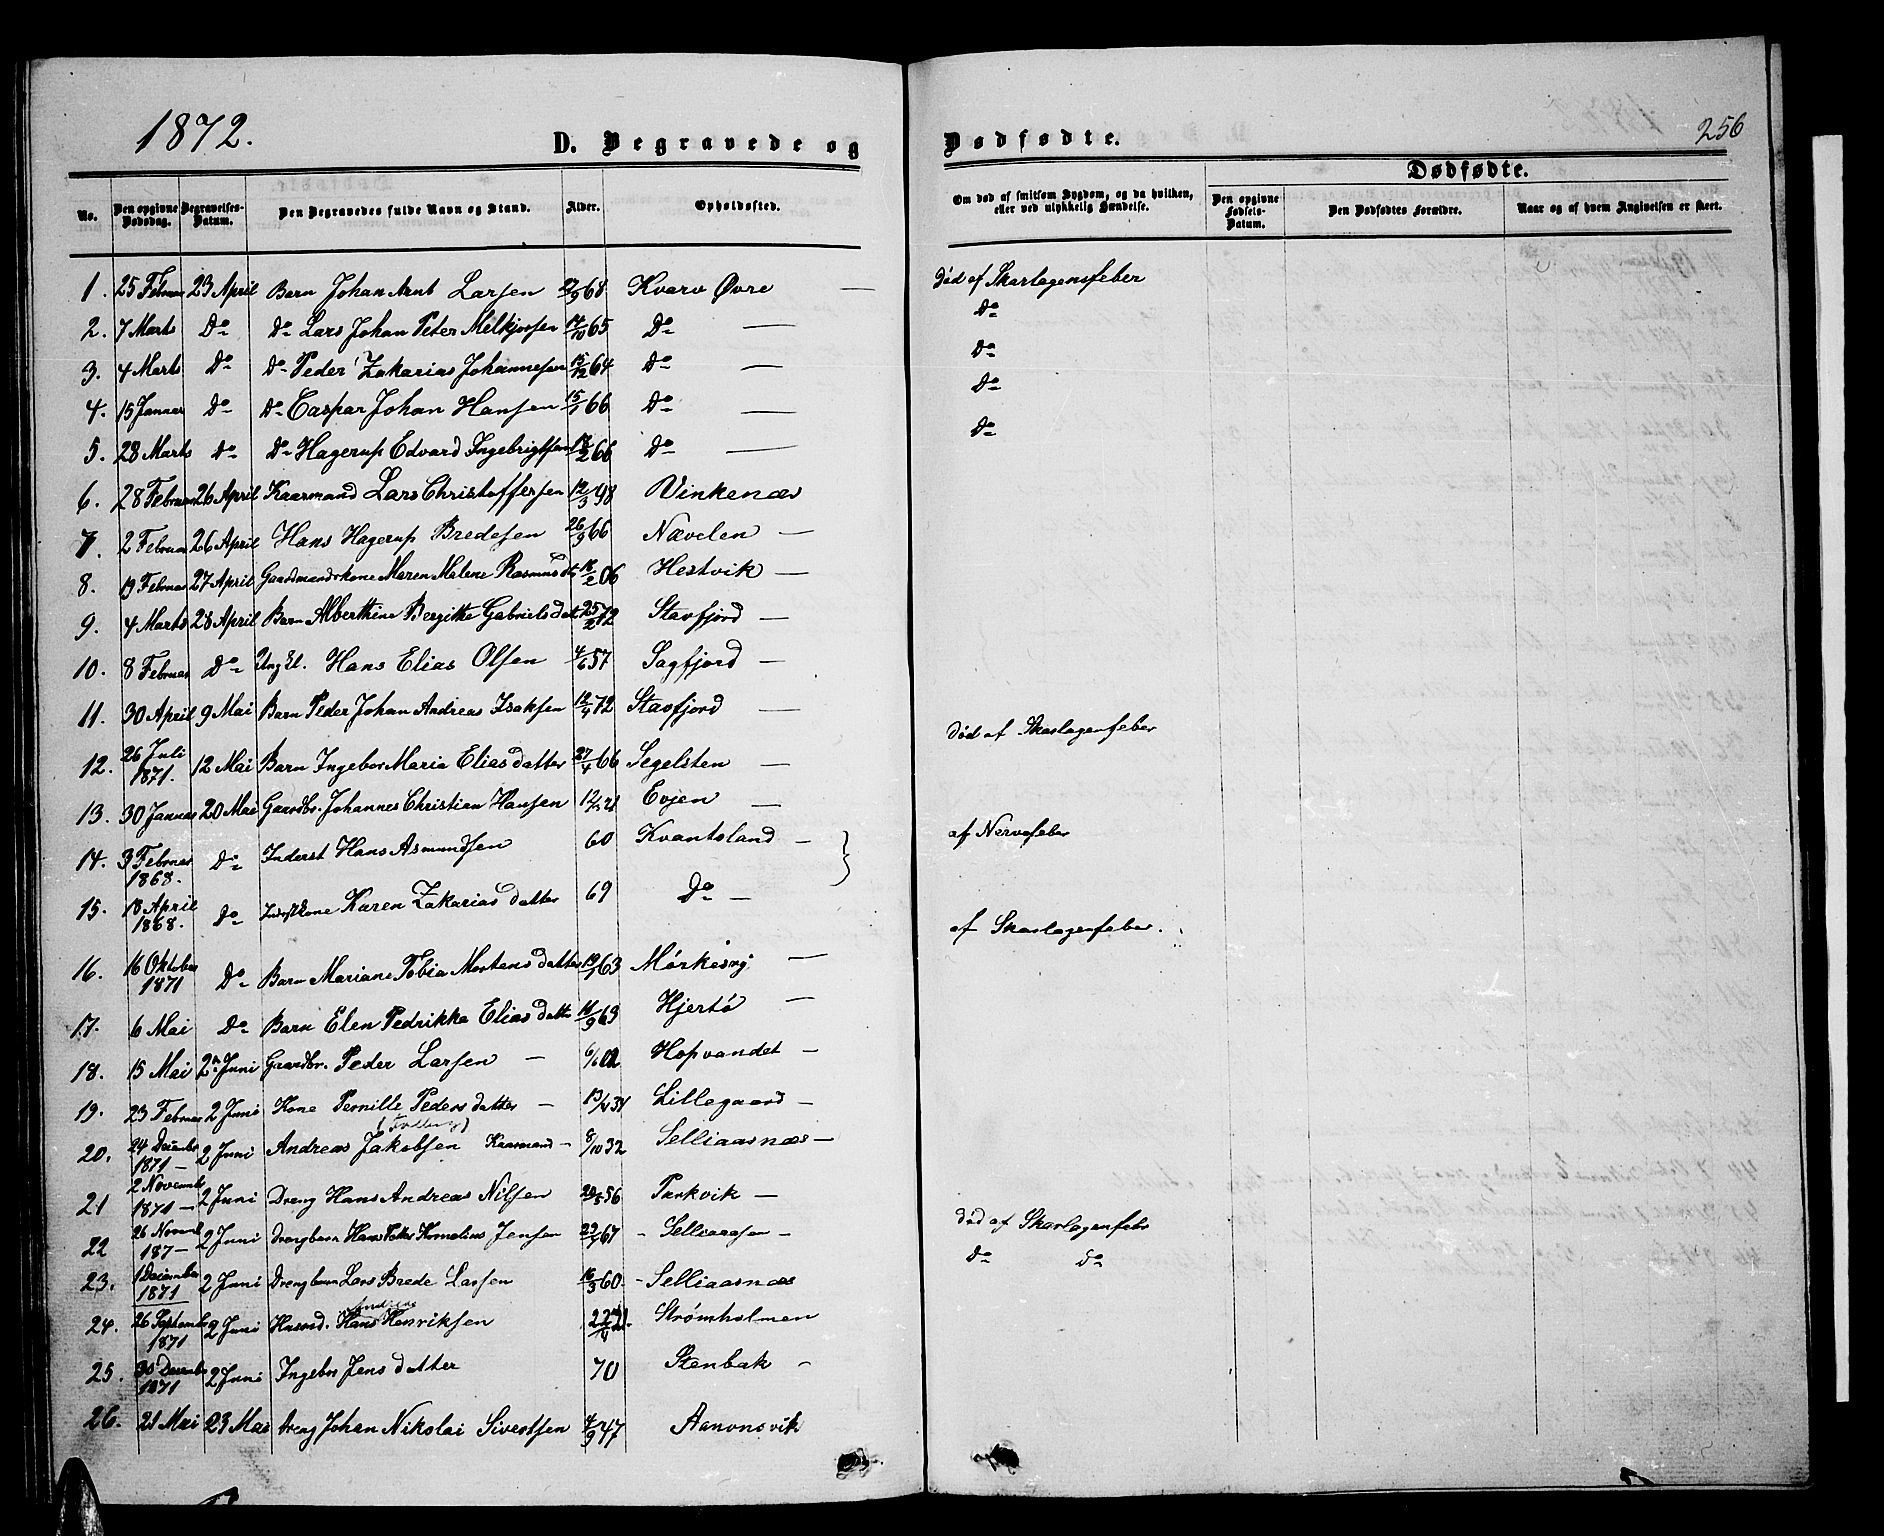 1872.
D. Begravede og
Dødfødte.
256
No.
Den opgivne Dødsdag.
Begravelses-Datum.
Den Begravedes fulde Navn og Stand.
Alder.
Opholdssted.
Om død af smitsom Sygdom, og da hvilken, eller ved ulykkelig Hændelse.
Dødfødte.
Den opgivne Fødsels-Datum.
Den Dødfødtes Forældre.
Naar og af hvem Angivelsen er skeet.
1. 25 Februar 23 April Barn Johan Arnt Larsen 68 Kvarv Øvre — Død af Skarlagensfeber
2. 7 Marts Do Do Lars Johan Peter Melkjorsen 14/10 65 Do — Do
3. 4 Marts Do Do Peder Zakarias Johannesen 15/12 64 Do — Do
4. 15 Januar Do Do Caspar Johan Hansen 15/1 66 Do — Do
5. 28 Marts Do Do Hagerup Edvard Ingebrigtsen 66 Do — Do
6. 28 Februar 26 April Kaarmand Lars Christoffersen 12/3 98 Vinkenæs
7. 2 Februar 26 April Hans Hagerup Bredesen 26/9 66 Nævelen —
8. 19 Februar 27 April Gaardmandskone Maren Malene Rasmusdt 18/2 06 Hestvik —
9. 4 Marts 28 April Barn Alberthine Bergitte Gabrielsdat 25/2 72 Stavfjord —
10. 8 Februar Do Ung Hans Elias Olsen 4/6 57 Sagfjord —
11. 30 April 9 Mai Barn Peder Johan Andreas Isaksen 12/4 72 Stavfjord —
12. 26 Juli 1871. 12 Mai Barn Ingebor Maria Eliasdatter 27/4 66 Segelsten — Død af Skarlagenfeber
13. 30 Januar 20 Mai Gaardbr. Johannes Christian Hansen Evjen —
14. 3 Februar 1868. Do Inderst Hans Asmundsen 60 Kvantoland — af Nervefeber
15. 18 April 1868. Do Inderstkone Karen Zakariasdatter 69 Do —
16. 16 Oktober 1871 Do Barn Mariane Tobia Mortensdatter 63 Mørkesvig — af Skarlagenfeber.
17. 6 Mai Do Barn Elen Pedrikka Eliasdatter 16/9 63 Hjertø —
18. 15 Mai 2n Juni Gaardbr. Peder Larsen — 6/6 02 Hopvandet —
19. 23 Februar 2 Juni Kone Pernille Pedersdatter — 31 Lillegaard —
20. 24 Decembr 1871 — 2 Juni Andreas Jakobsen Kaarmand — 8/10 32 Selliaasnæs —
21 2 Novembr 1871 — 2 Juni Dreng Hans Andreas Nilsen 56 Parkvik —
22 26 Novemb 187— 2 Juni Drengbarn Hans Peder Kornelius Jensen 67 - Selliaasen — død af Skarlagenfebr
23. 1 December 1871 2 Juni Drengbarn Lars Brede Larsen 16/3 60 - Selliaasnæs Do Do
24. 26 Septembr 1871 2 Juni Husmd. Hans Andreas Henriksen Strømholmen
25. 30 December 1871 2 Juni Ingebor Jensdatter 70 Stenbak —
26. 21 Mai 23 Mai Dreng Johan Nikolai Sivertsen 4/9 47 Aanonsvik